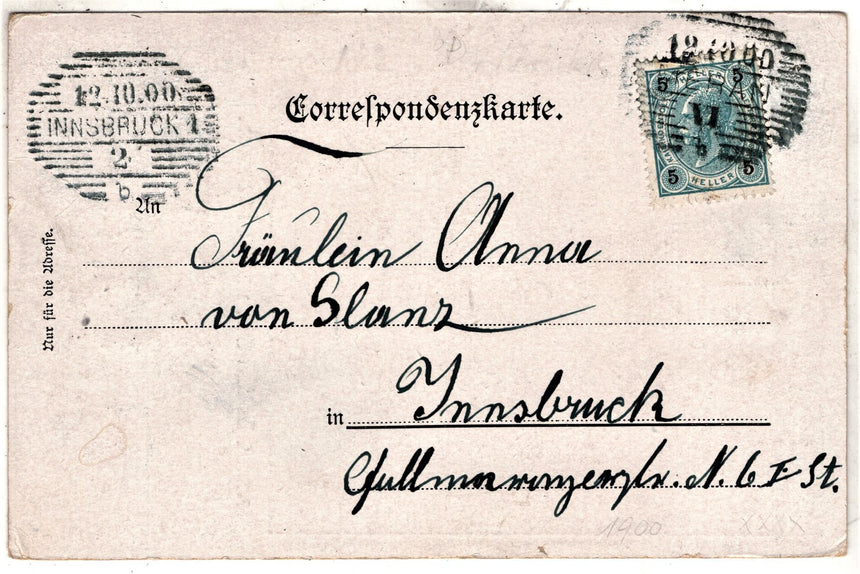 12.10.00
INNSBRUCK 1
2
b
12.10.00
VI
b
5 5
5 HELLER 5
Correspondenzkarte.
An
Fräulein Anna
von Glanz
in Innsbruck
N. 6 I St.
Nur für die Adresse.
1900 XXXX